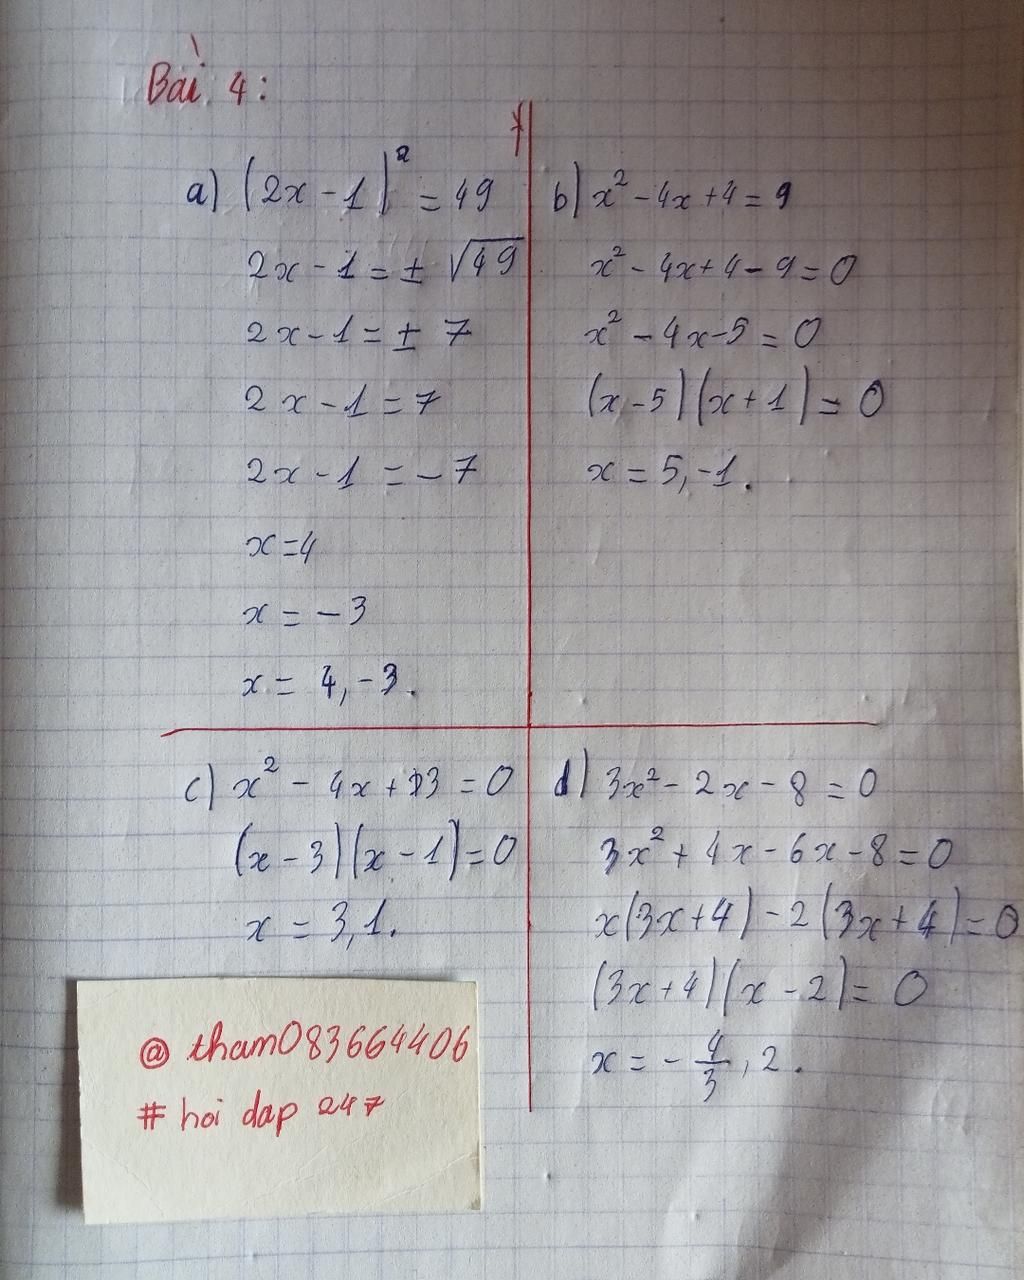 Bài 4:
a) (2x - 1)² = 49
2x - 1 = ± √49
2x - 1 = ± 7
2x - 1 = 7
2x - 1 = - 7
x = 4
x = - 3
x = 4, -3.
b) x² - 4x + 4 = 9
x² - 4x + 4 - 9 = 0
x² - 4x - 5 = 0
(x - 5)(x + 1) = 0
x = 5, -1.
c) x² - 4x + 3 = 0
(x - 3)(x - 1) = 0
x = 3, 1.
d) 3x² - 2x - 8 = 0
3x² + 4x - 6x - 8 = 0
x(3x + 4) - 2(3x + 4) = 0
(3x + 4)(x - 2) = 0
x = - 4/3, 2.
@ tham083664406
# hoi dap 247